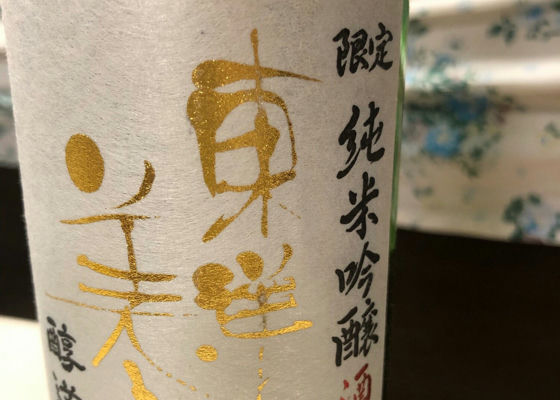 限定 純米吟醸酒
東洋
美
醇道